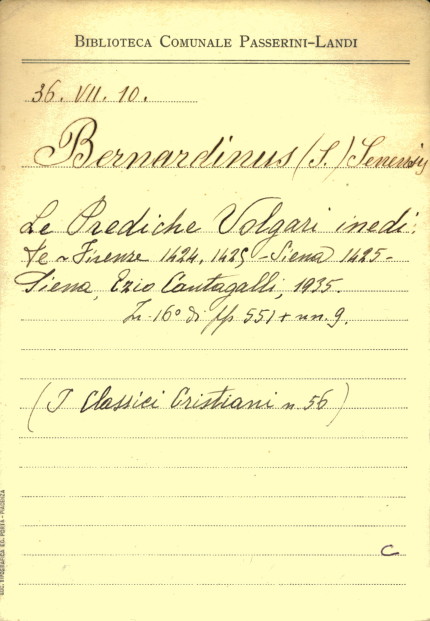 BIBLIOTECA COMUNALE PASSERINI-LANDI
36. VII. 10.
Bernardinus (S.) Senensis
Le Prediche Volgari inedi-
te ~ Firenze 1424, 1425 - Siena 1425 -
Siena, Ezio Cantagalli, 1935.
In-16° di pp 551 + nn. 9.
(I Classici Cristiani n 56)
C
SOC. TIPOGRAFICA ED. PORTA - PIACENZA